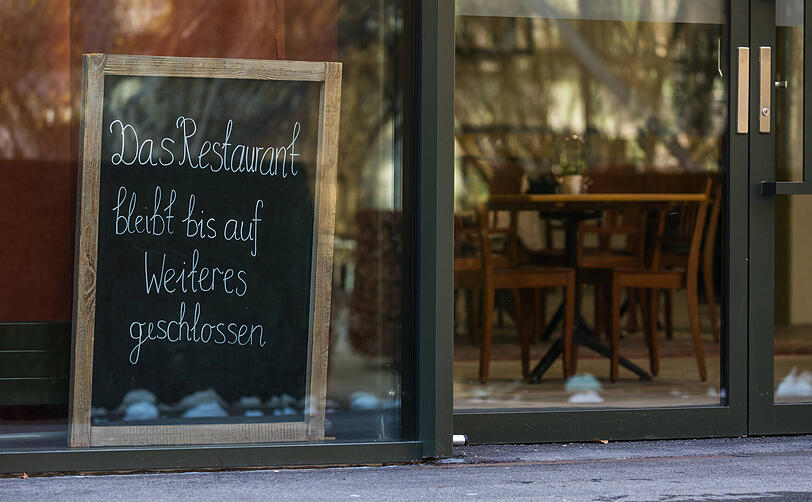 Das Restaurant
bleibt bis auf
Weiteres
geschlossen